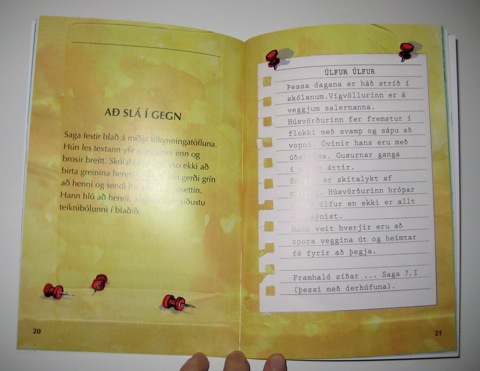 AÐ SLÁ Í GEGN
Saga festir blað á miðja tilkynningatöfluna.
Hún les textann yfir enn og
brosir breitt. ekki að
birta greinina hennar gerði grín
að henni og sendi
Hann hló að henni. síðustu
teiknibólunni í blaðið.
20
ÚLFUR ÚLFUR
Þessa dagana er háð stríð í
skólanum. Vígvöllurinn er á
veggjum salernanna.
Húsvörðurinn fer fremstur í
flokki með svamp og sápu að
vopni. Óvinir hans eru með
Gusurnar ganga
áttir.
er skítalykt af
Húsvörðurinn hrópar
úlfur en ekki er allt
Hann veit hverjir eru að
spora veggina út og heimtar
fá fyrir að þegja.
Framhald síðar ... Saga 7.I
(þessi með derhúfuna).
21